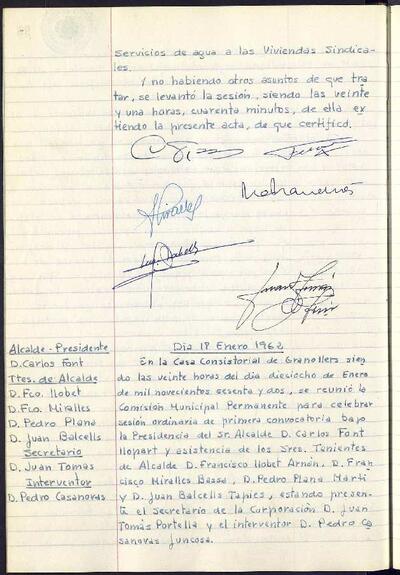 Servicios de agua a las Viviendas Sindica-
les.
Y no habiendo otros asuntos de que tra
tar, se levantó la sesión, siendo las veinte
y una horas, cuarenta minutos, de ella ex
tiendo la presente acta, de que certifico.
Alcalde-Presidente
D. Carlos Font
Ttes. de Alcalde
D. Fco. llobet
D. Fco. Miralles
D. Pedro Plana
D. Juan Balcells
Secretario
D. Juan Tomas
Interventor
D. Pedro Casanovas
Dia 18 Enero 1962
En la Casa Consistorial de Granollers sien
do las veinte horas del dia dieciocho de Enero
de mil novecientos sesenta y dos, se reunió la
Comisión Municipal Permanente para celebrar
sesión ordinaria de primera convocatoria bajo
la Presidencia del Sr. Alcalde D. Carlos Font
llopart y asistencia de los Sres. Tenientes
de Alcalde D. Francisco llobet Arnán, D. Fran
cisco Miralles Bassa, D. Pedro Plana Martí
y D. Juan Balcells Tapies, estando presen-
te el secretario de la Corporación D. Juan
Tomás Portella y el interventor D. Pedro Ca
sanovas Juncosa.